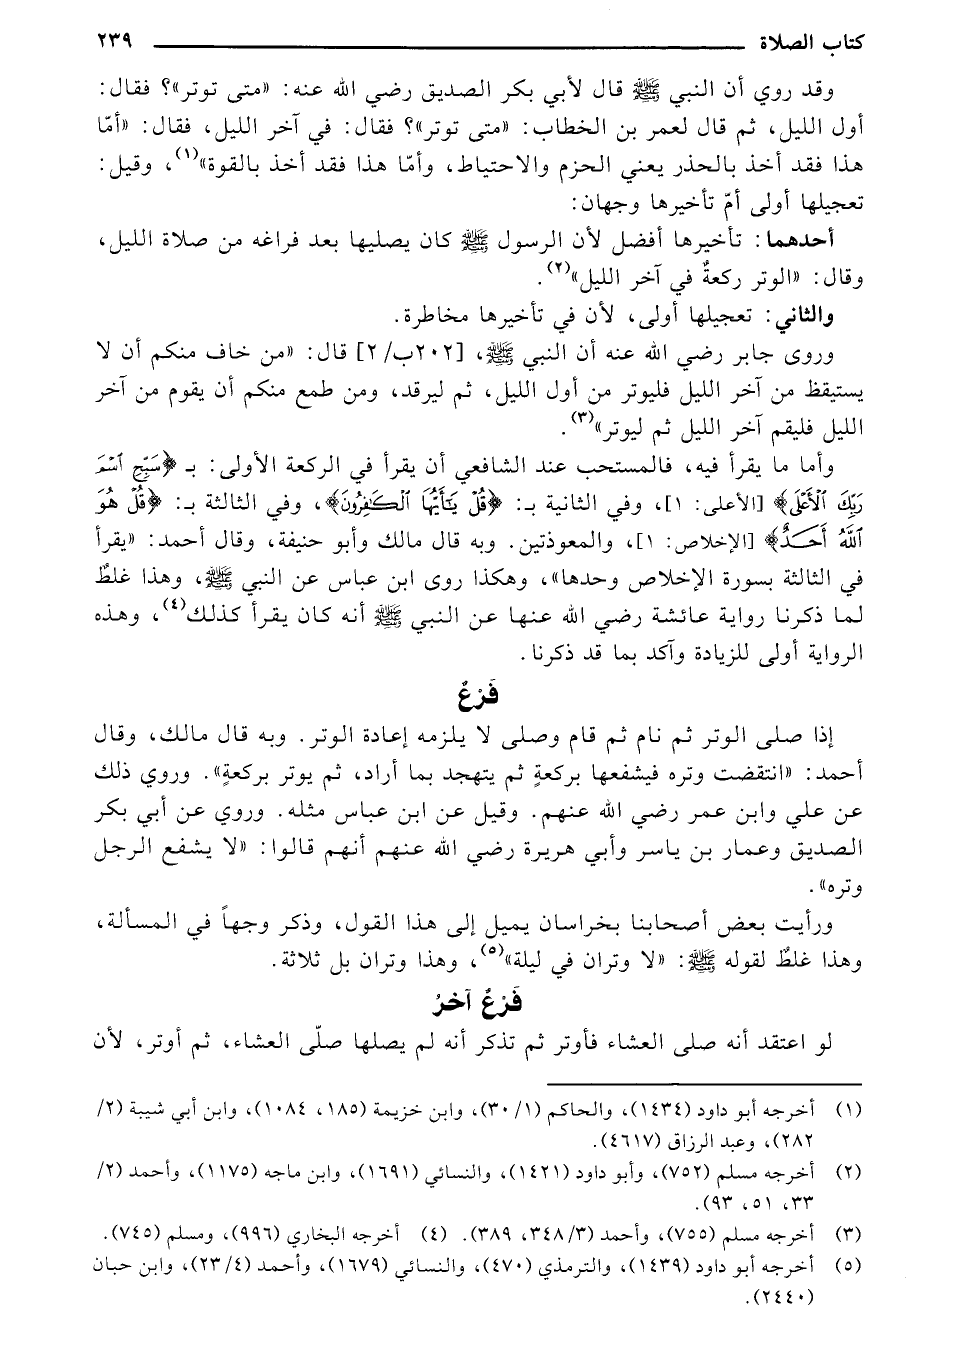 كتاب الصلاة ٢٣٩
وقد روي أن النبي ﷺ قال لأبي بكر الصديق رضي الله عنه: «متى توتر»؟ فقال:
أول الليل، ثم قال لعمر بن الخطاب: «متى توتر»؟ فقال: في آخر الليل، فقال: «أمّا
هذا فقد أخذ بالحذر يعني الحزم والاحتياط، وأمّا هذا فقد أخذ بالقوة»(١)، وقيل:
تعجيلها أولى أمّ تأخيرها وجهان:
أحدهما: تأخيرها أفضل لأن الرسول ﷺ كان يصليها بعد فراغه من صلاة الليل،
وقال: «الوتر ركعةٌ في آخر الليل»(٢).
والثاني: تعجيلها أولى، لأن في تأخيرها مخاطرة.
وروى جابر رضي الله عنه أن النبي ﷺ، [٢٠٢ب/ ٢] قال: «من خاف منكم أن لا
يستيقظ من آخر الليل فليوتر من أول الليل، ثم ليرقد، ومن طمع منكم أن يقوم من آخر
الليل فليقم آخر الليل ثم ليوتر»(٣).
وأما ما يقرأ فيه، فالمستحب عند الشافعي أن يقرأ في الركعة الأولى: بـ ﴿سَبِّحِ ٱسْمَ
رَبِّكَ ٱلْأَعْلَى﴾ [الأعلى: ١]، وفي الثانية بـ: ﴿قُلْ يَٰٓأَيُّهَا ٱلْكَٰفِرُونَ﴾، وفي الثالثة بـ: ﴿قُلْ هُوَ
ٱللَّهُ أَحَدٌ﴾ [الإخلاص: ١]، والمعوذتين. وبه قال مالك وأبو حنيفة، وقال أحمد: «يقرأ
في الثالثة بسورة الإخلاص وحدها»، وهكذا روى ابن عباس عن النبي ﷺ، وهذا غلطٌ
لما ذكرنا رواية عائشة رضي الله عنها عن النبي ﷺ أنه كان يقرأ كذلك(٤)، وهذه
الرواية أولى للزيادة وآكد بما قد ذكرنا.
فَرْعٌ
إذا صلى الوتر ثم نام ثم قام وصلى لا يلزمه إعادة الوتر. وبه قال مالك، وقال
أحمد: «انتقضت وتره فيشفعها بركعةٍ ثم يتهجد بما أراد، ثم يوتر بركعةٍ». وروي ذلك
عن علي وابن عمر رضي الله عنهم. وقيل عن ابن عباس مثله. وروي عن أبي بكر
الصديق وعمار بن ياسر وأبي هريرة رضي الله عنهم أنهم قالوا: «لا يشفع الرجل
وتره».
ورأيت بعض أصحابنا بخراسان يميل إلى هذا القول، وذكر وجهاً في المسألة،
وهذا غلطٌ لقوله ﷺ: «لا وتران في ليلة»(٥)، وهذا وتران بل ثلاثة.
فَرْعٌ آخرُ
لو اعتقد أنه صلى العشاء فأوتر ثم تذكر أنه لم يصلها صلّى العشاء، ثم أوتر، لأن
(١) أخرجه أبو داود (١٤٣٤)، والحاكم (٣٠/١)، وابن خزيمة (١٨٥، ١٠٨٤)، وابن أبي شيبة (٢/
٢٨٢)، وعبد الرزاق (٤٦١٧).
(٢) أخرجه مسلم (٧٥٢)، وأبو داود (١٤٢١)، والنسائي (١٦٩١)، وابن ماجه (١١٧٥)، وأحمد (٢/
٣٣، ٥١، ٩٣).
(٣) أخرجه مسلم (٧٥٥)، وأحمد (٣٤٨/٣، ٣٨٩). (٤) أخرجه البخاري (٩٩٦)، ومسلم (٧٤٥).
(٥) أخرجه أبو داود (١٤٣٩)، والترمذي (٤٧٠)، والنسائي (١٦٧٩)، وأحمد (٢٣/٤)، وابن حبان
(٢٤٤٠).